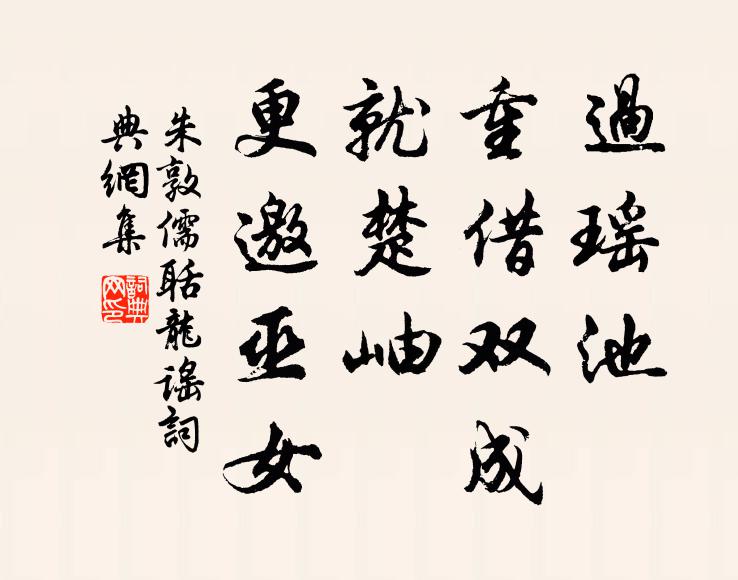 過瑶池
重借双成
就楚岫
更邀巫女
朱敦儒聒龍謠詞
典網集
詞典网印